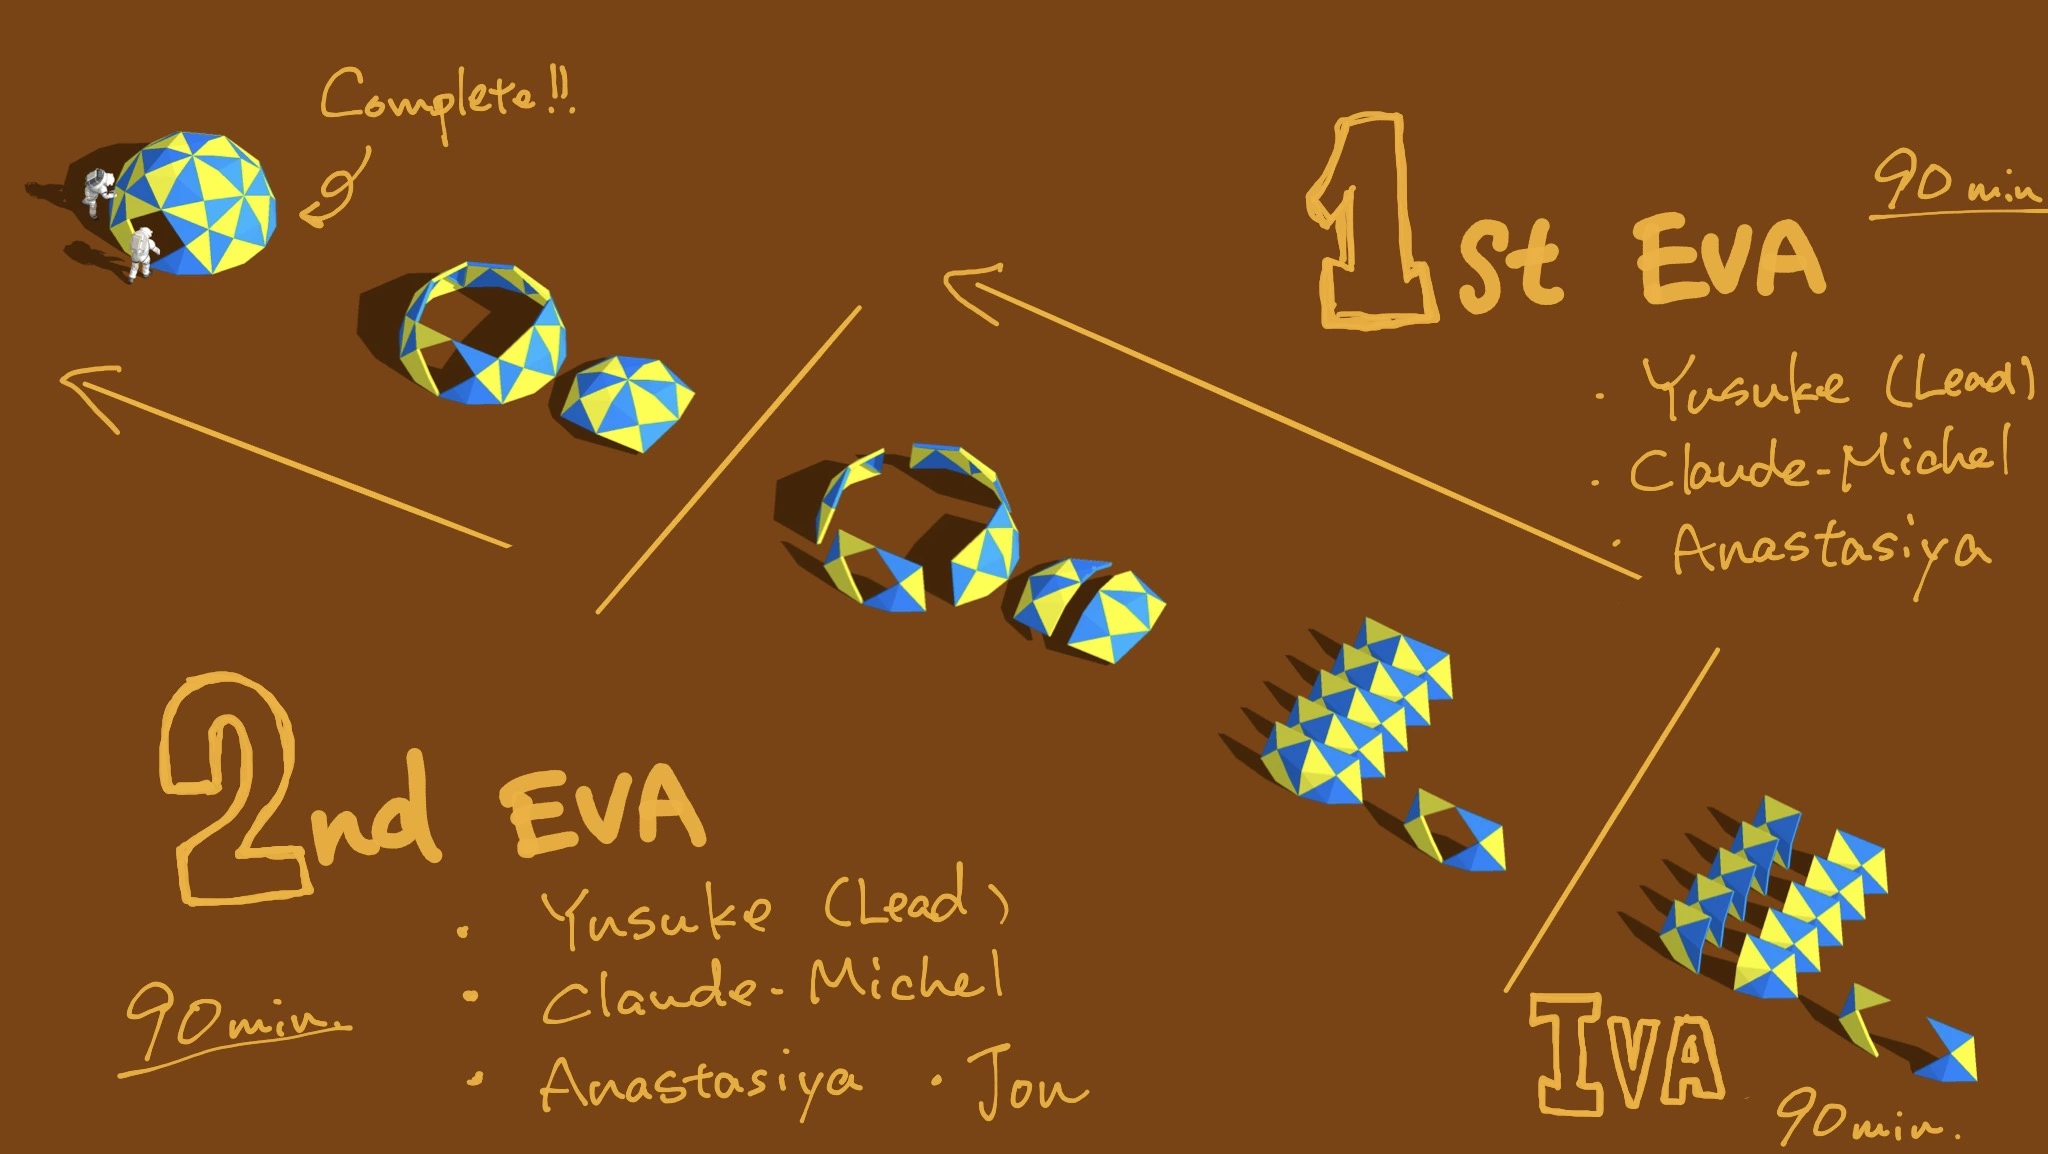 Complete!!
1st EVA
90 min
· Yusuke (Lead)
· Claude-Michel
· Anastasiya
2nd EVA
90min.
· Yusuke (Lead)
· Claude-Michel
· Anastasiya · Jon
IVA
90min.